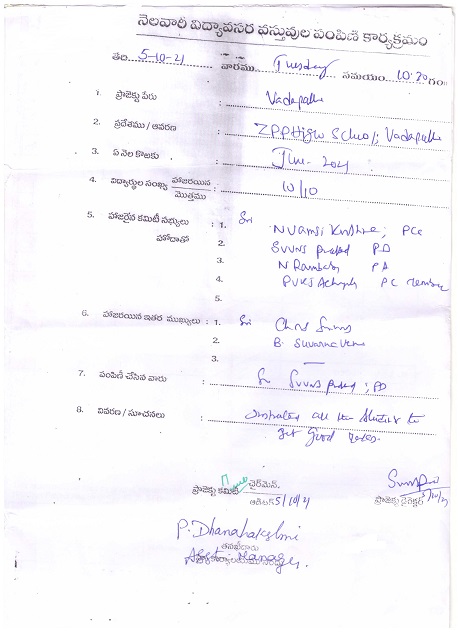 నెలవారీ విద్యావసర వస్తువుల పంపిణీ కార్యక్రమం
తేది 5-10-21 వారము Tuesday సమయం 10:20 గం॥
1. ప్రాజెక్టు పేరు : Vadapalle
2. ప్రదేశము / ఆవరణ : ZPPHigh School, Vadapalle
3. ఏ నెల కొఱకు : June - 2021
4. విద్యార్థుల సంఖ్య హాజరయిన / మొత్తము : 10/10
5. హాజరైన కమిటీ సభ్యులు : 1. Sri N Vamsi Krishna, PCC
హోదాతో 2. SVVNS Prasad PD
3. N Rambabu PA
4. PVKS PC member
5.
6. హాజరయిన ఇతర ముఖ్యులు : 1. Sri
2. B. Suvarna
3. —
7. పంపిణీ చేసిన వారు : Sri SVVNS Prasad, PD
8. వివరణ / సూచనలు : all the students to
get good
ప్రాజెక్టు కమిటీ ఛైర్‌మెన్.
ఆడిటర్ 5/10/21
ప్రాజెక్టు డైరెక్టర్ 5/10/21
P. Dhanalakshmi
తనఖీదారు
Asst. Manager